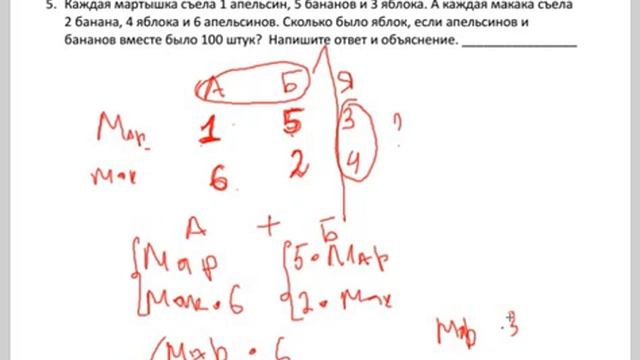 5. Каждая мартышка съела 1 апельсин, 5 бананов и 3 яблока. А каждая макака съела
2 банана, 4 яблока и 6 апельсинов. Сколько было яблок, если апельсинов и
бананов вместе было 100 штук? Напишите ответ и объяснение. ________________
А Б Я
Мар. 1 5 3 ?
Мак 6 2 4
А + Б
Мар 5•Мар
Мак•6 2•Мак
Мар • 6
Мар •3